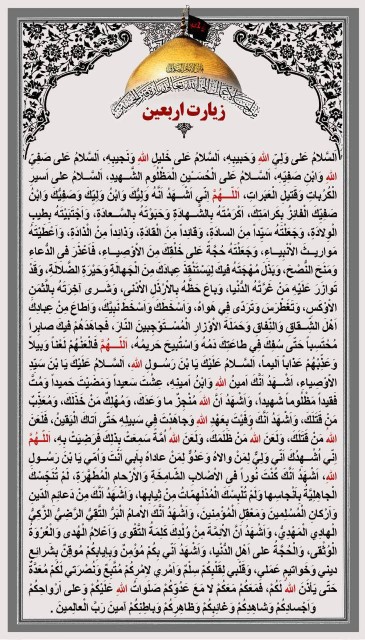 زيارت اربعين
اَلسَّلامُ عَلى وَلِيِّ اللهِ وَحَبيبِهِ، اَلسَّلامُ عَلى خَليلِ اللهِ وَنَجيبِهِ، اَلسَّلامُ عَلى صَفِيِّ
اللهِ وَابْنِ صَفِيِّهِ، اَلسَّلامُ عَلى الْحُسَيْنِ الْمَظْلُومِ الشَّهيدِ، اَلسَّلامُ على اَسيرِ
الْكُرُباتِ وَقَتيلِ الْعَبَراتِ، اَللّـهُمَّ اِنّي اَشْهَدُ اَنَّهُ وَلِيُّكَ وَابْنُ وَلِيِّكَ وَصَفِيُّكَ وَابْنُ
صَفِيِّكَ الْفائِزُ بِكَرامَتِكَ، اَكْرَمْتَهُ بِالشَّهادَةِ وَحَبَوْتَهُ بِالسَّعادَةِ، وَاَجْتَبَيْتَهُ بِطيبِ
الْوِلادَةِ، وَجَعَلْتَهُ سَيِّداً مِنَ السادَةِ، وَقائِداً مِنَ الْقادَةِ، وَذائِداً مِنْ الْذادَةِ، وَاَعْطَيْتَهُ
مَواريثَ الاَنْبِياءِ، وَجَعَلْتَهُ حُجَّةً عَلى خَلْقِكَ مِنَ الاَوْصِياءِ، فَاَعْذَرَ فى الدُّعاءِ
وَمَنَحَ النُّصْحَ، وَبَذَلَ مُهْجَتَهُ فيكَ لِيَسْتَنْقِذَ عِبادَكَ مِنَ الْجَهالَةِ وَحَيْرَةِ الضَّلالَةِ، وَقَدْ
تَوازَرَ عَلَيْهِ مَنْ غَرَّتْهُ الدُّنْيا، وَباعَ حَظَّهُ بِالاَرْذَلِ الاَدْنى، وَشَرى آخِرَتَهُ بِالثَّمَنِ
الاَوْكَسِ، وَتَغَطْرَسَ وَتَرَدّى فِي هَواهُ، وَاَسْخَطَكَ وَاَسْخَطَ نَبِيَّكَ، وَاَطاعَ مِنْ عِبادِكَ
اَهْلَ الشِّقاقِ وَالنِّفاقِ وَحَمَلَةَ الاَوْزارِ الْمُسْتَوْجِبينَ النّارَ، فَجاهَدَهُمْ فيكَ صابِراً
مُحْتَسِباً حَتّى سُفِكَ فِي طاعَتِكَ دَمُهُ وَاسْتُبيحَ حَريمُهُ، اَللّـهُمَّ فَالْعَنْهُمْ لَعْناً وَبيلاً
وَعَذِّبْهُمْ عَذاباً اَليماً، اَلسَّلامُ عَلَيْكَ يَا بْنَ رَسُولِ اللهِ، اَلسَّلامُ عَلَيْكَ يَا بْنَ سَيِّدِ
الاَوْصِياءِ، اَشْهَدُ اَنَّكَ اَمينُ اللهِ وَابْنُ اَمينِهِ، عِشْتَ سَعيداً وَمَضَيْتَ حَميداً وَمُتَّ
فَقيداً مَظْلُوماً شَهيداً، وَاَشْهَدُ اَنَّ اللهَ مُنْجِزٌ ما وَعَدَكَ، وَمُهْلِكٌ مَنْ خَذَلَكَ، وَمُعَذِّبٌ
مَنْ قَتَلَكَ، وَاَشْهَدُ اَنَّكَ وَفَيْتَ بِعَهْدِ اللهِ وَجاهَدْتَ فِي سَبيلِهِ حَتّى اَتاكَ الْيَقينُ، فَلَعَنَ
اللهُ مَنْ قَتَلَكَ، وَلَعَنَ اللهُ مَنْ ظَلَمَكَ، وَلَعَنَ اللهُ اُمَّةً سَمِعَتْ بِذلِكَ فَرَضِيَتْ بِهِ، اَللّـهُمَّ
اِنّي اُشْهِدُكَ اَنّي وَلِيٌّ لِمَنْ والاهُ وَعَدُوٌّ لِمَنْ عاداهُ بِاَبي اَنْتَ وَاُمّي يَا بْنَ رَسُولِ
اللهِ، اَشْهَدُ اَنَّكَ كُنْتَ نُوراً فى الاَصْلابِ الشّامِخَةِ وَالاَرْحامِ الْمُطَهَّرَةِ، لَمْ تُنَجِّسْكَ
الْجاهِلِيَّةُ بِاَنْجاسِها وَلَمْ تُلْبِسْكَ الْمُدْلَهِمّاتُ مِنْ ثِيابِها، وَاَشْهَدُ اَنَّكَ مِنْ دَعائِمِ الدّينِ
وَاَرْكانِ الْمُسْلِمينَ وَمَعْقِلِ الْمُؤْمِنينَ، وَاَشْهَدُ اَنَّكَ الاِمامُ الْبَرُّ التَّقِيُّ الرَّضِيُّ الزَّكِيُّ
الْهادِي الْمَهْدِيُّ، وَاَشْهَدُ اَنَّ الاَئِمَّةَ مِنْ وُلْدِكَ كَلِمَةُ التَّقْوى وَاَعْلامُ الْهُدى وَالْعُرْوَةُ
الْوُثْقى، وَالْحُجَّةُ على اَهْلِ الدُّنْيا، وَاَشْهَدُ اَنّي بِكُمْ مُؤْمِنٌ وَبِاِيابِكُمْ مُوقِنٌ بِشَرايِعِ
ديني وَخَواتيمِ عَمَلي، وَقَلْبي لِقَلْبِكُمْ سِلْمٌ وَاَمْري لاَمْرِكُمْ مُتَّبِعٌ وَنُصْرَتي لَكُمْ مُعَدَّةٌ
حَتّى يَأْذَنَ اللهُ لَكُمْ، فَمَعَكُمْ مَعَكُمْ لا مَعَ عَدُوِّكُمْ صَلَواتُ اللهِ عَلَيْكُمْ وَعلى اَرْواحِكُمْ
وَاَجْسادِكُمْ وَشاهِدِكُمْ وَغائِبِكُمْ وَظاهِرِكُمْ وَباطِنِكُمْ آمينَ رَبَّ الْعالِمينَ .